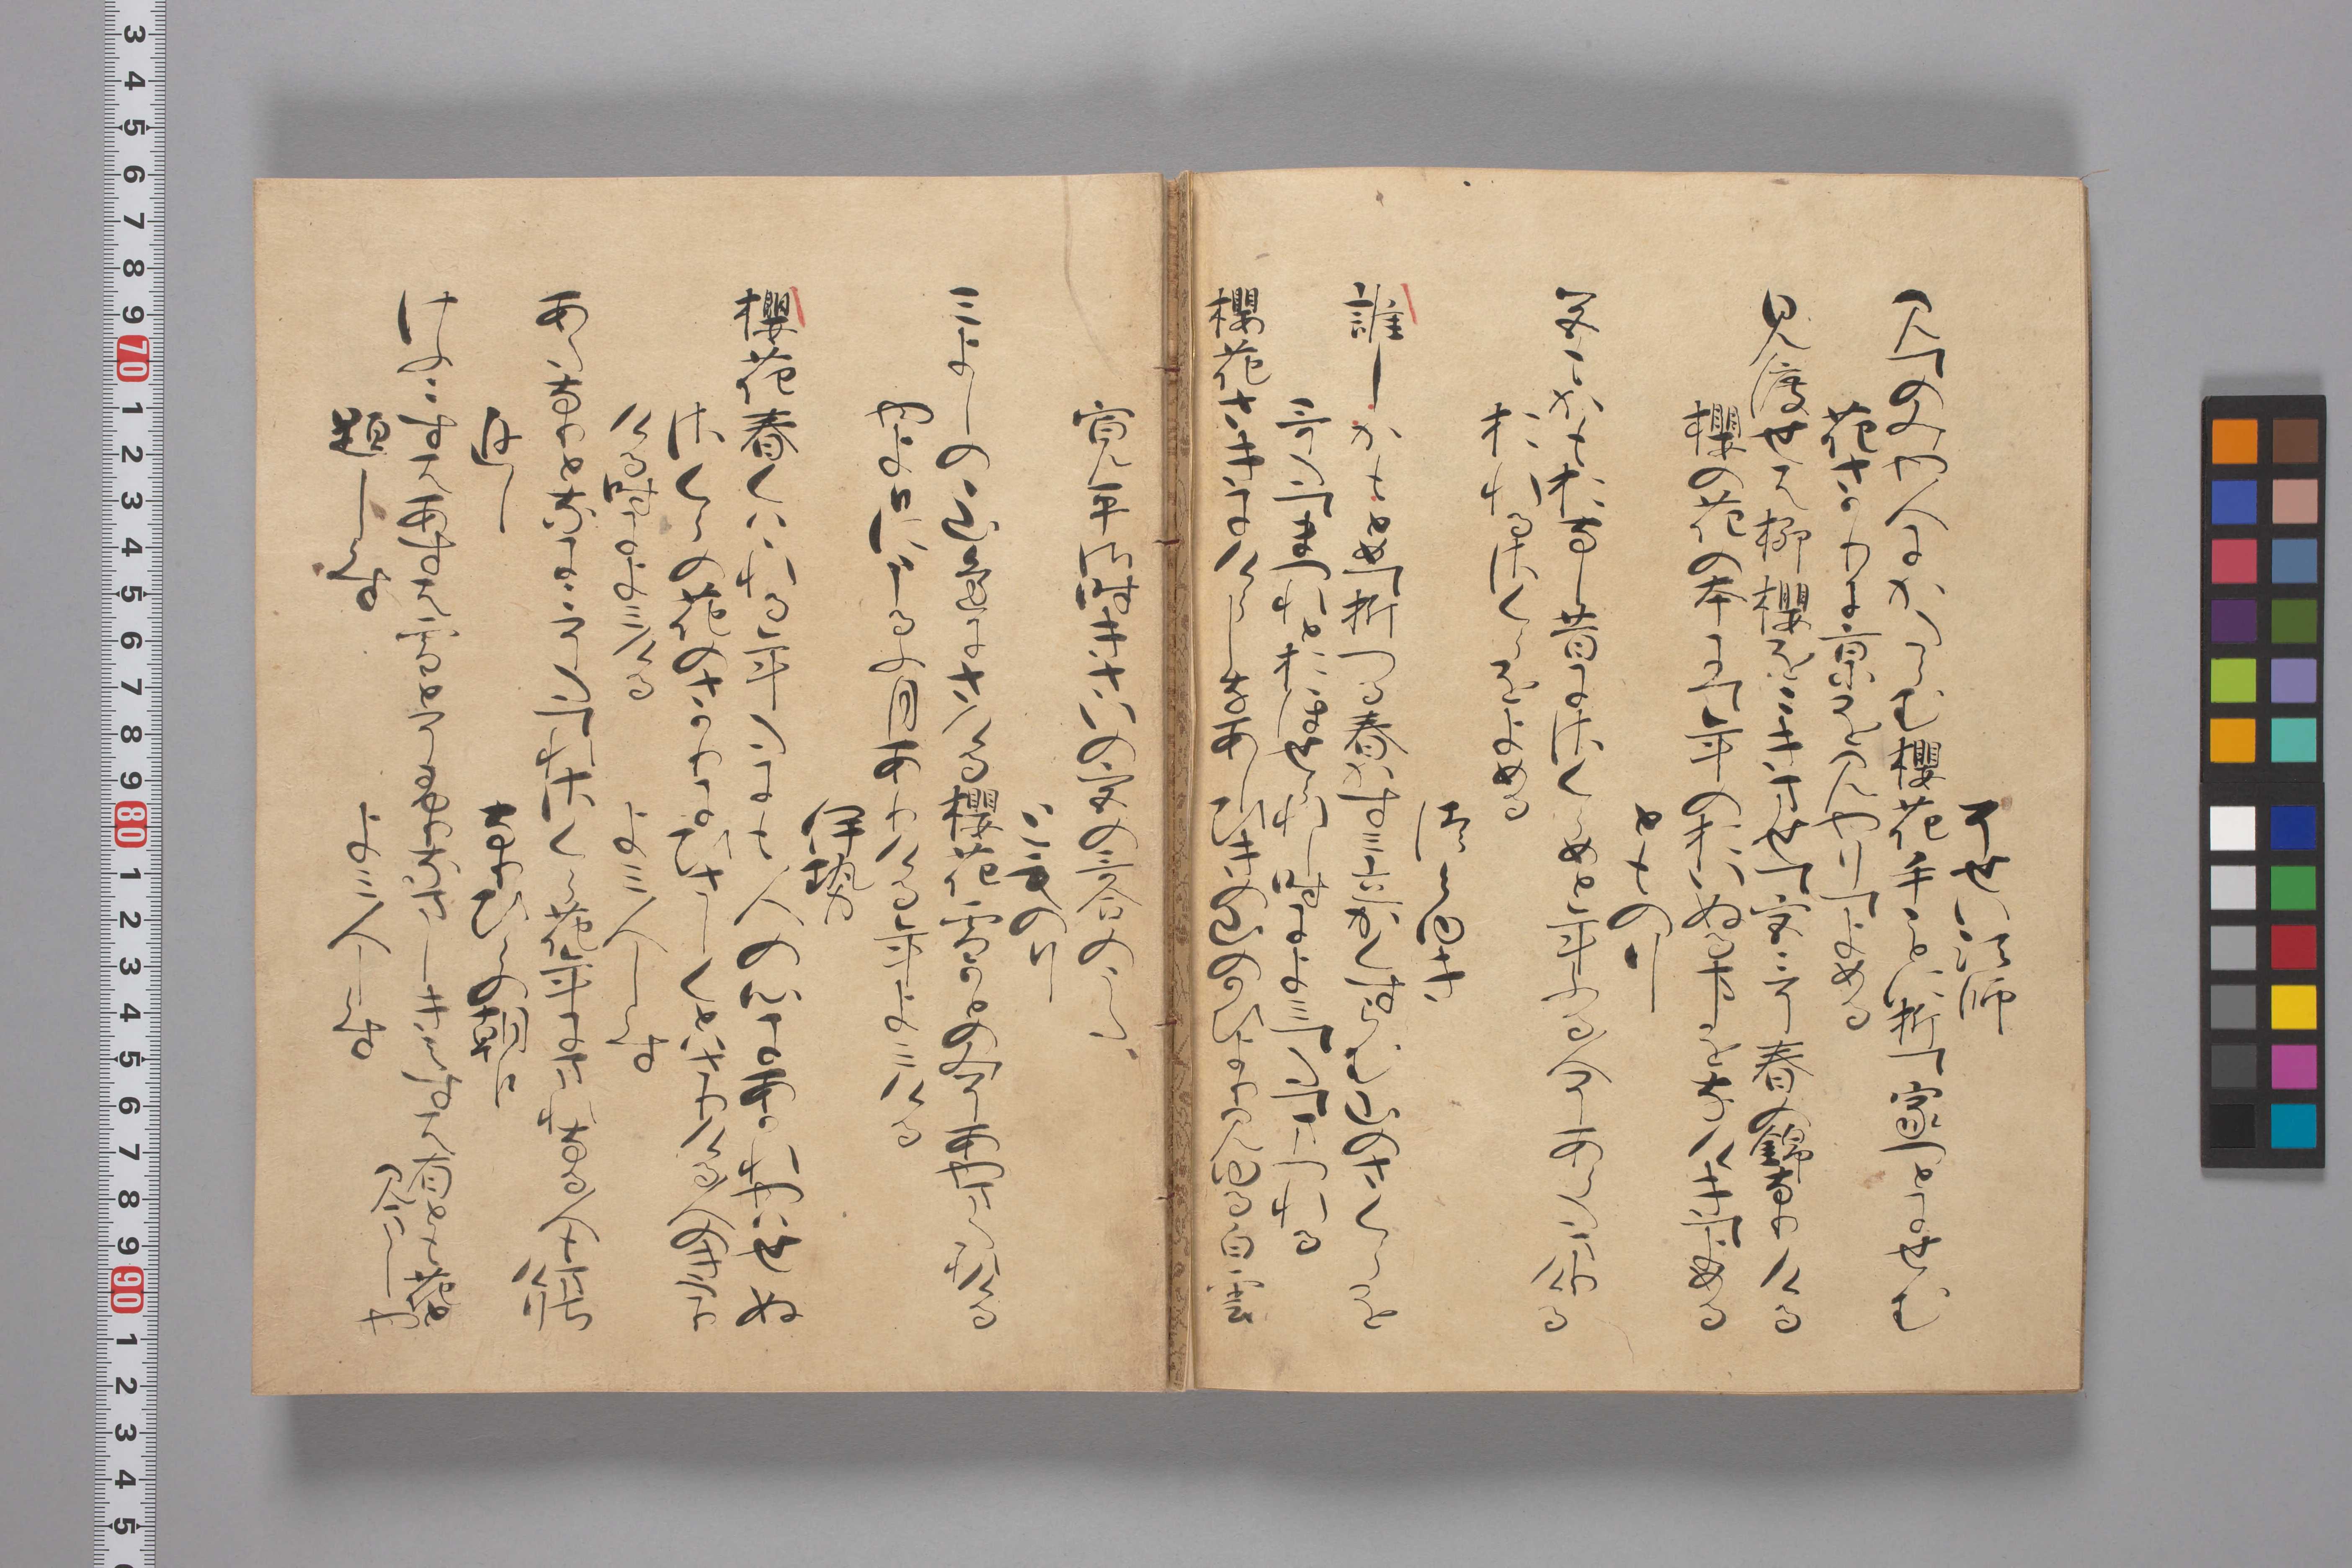 そせい法師
見てのみや人にかたらむ櫻花手ことに折て家つとにせむ
花さかりに京をみやりてよめる
見渡せは柳櫻をこきませて宮こそ春の錦なりける
櫻の花の本にて年の老ぬることをなけきてよめる
きのとものり
色もかもおなし昔にさくらめと年ふる人そあらたまりける
おれるさくらをよめる
つらゆき
誰しかもとめて折つる春霞立かくすらむ山のさくらを
哥たてまつれとおほせられし時によみてたてまつれる
櫻花さきにけらしもあしひきの山のかひよりみゆる白雲
寛平御時きさいの宮の哥合のうた
とものり
みよしのの山へにさける櫻花雪かとのみそあやまたれける
やよひにうるふ月ありける年よみける
伊勢
櫻花春くははれる年たにも人の心にあかれやはせぬ
さくらの花のさかりに久しくとはさりける人のきたり
ける時によみける よみ人しらす
あたなりと名にこそたてれ櫻花年にまれなる人もまちけり
返し なりひらの朝臣
けふこすはあすは雪とそふりなまし消すはありとも花と
見ましや
題しらす よみ人しらす